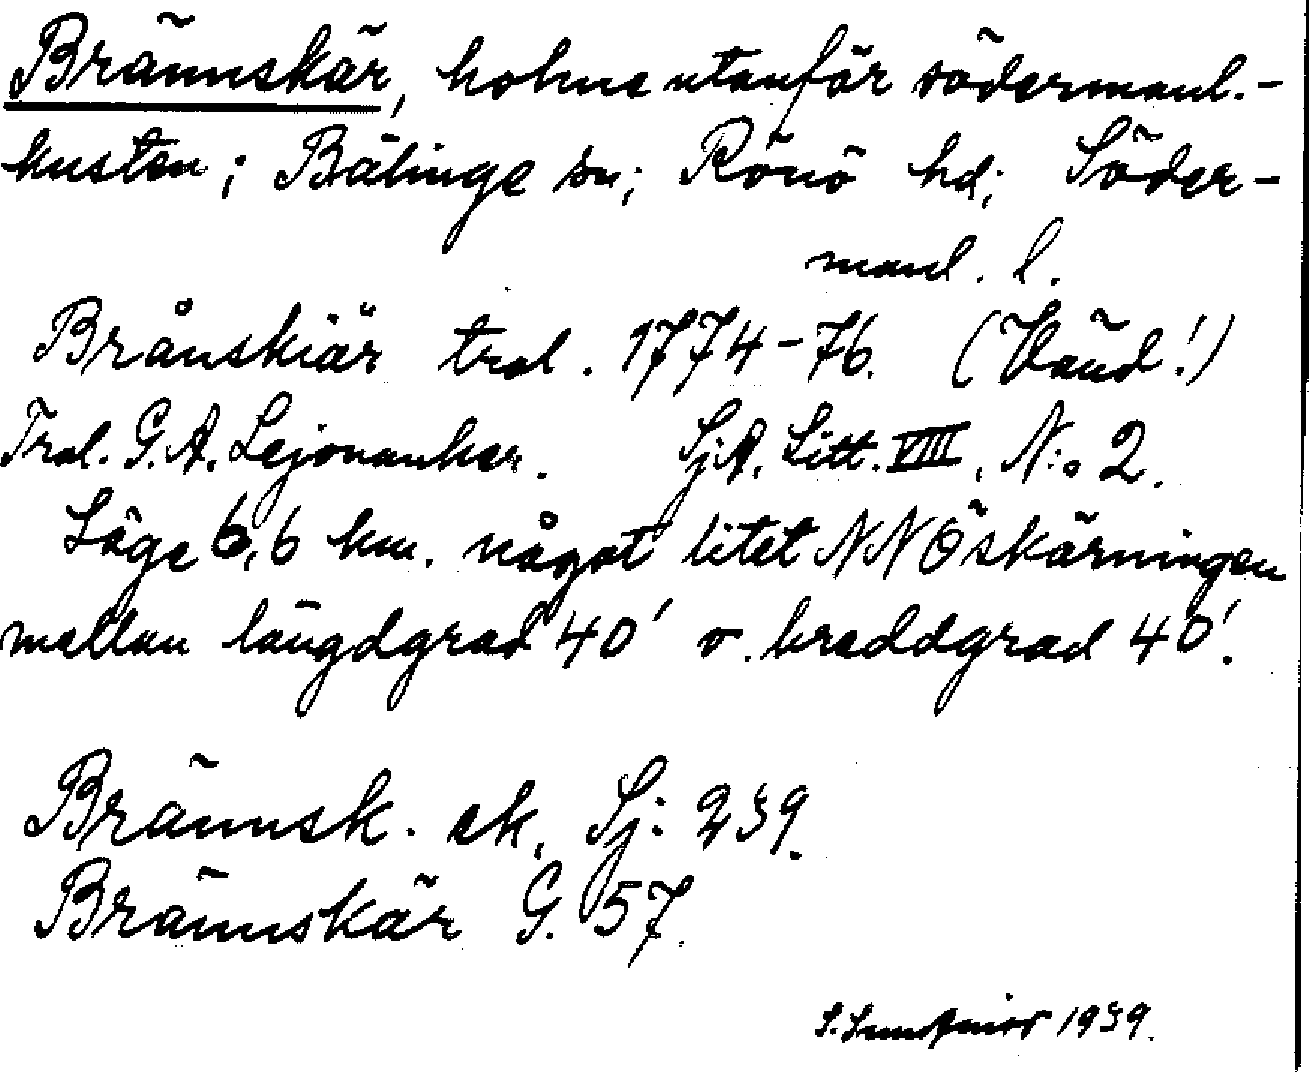 Brännskär, holme utanför södermanl.-
kusten; Bälinge sn; Rönö hd; Söder-
manl. l.
Brånskiär trol. 1774-76. (Vänd!)
Trol. G. A. Lejonanker. SjA. Litt. VIII, N:o 2.
Läge 6,6 km. något litet NNÖ skärningen
mellan längdgrad 40' o. breddgrad 40'.
Brännsk. ek. Sj: 239.
Brännskär G. 57.
1939.